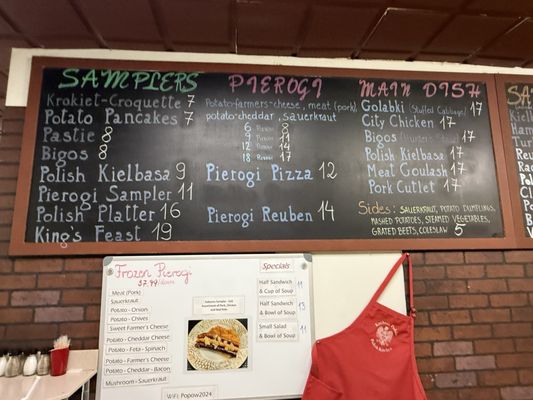 SAMPLERS
Krokiet-Croquette 7
Potato Pancakes 7
Pastie 8
Bigos 8
Polish Kielbasa 9
Pierogi Sampler 11
Polish Platter 16
King's Feast 19
PIEROGI
Potato-farmers-cheese, meat (pork)
potato-cheddar, sauerkraut
6 8
9 11
12 14
18 17
Pierogi Pizza 12
Pierogi Reuben 14
MAIN DISH
Golabki (Stuffed Cabbage) 17
City Chicken 17
Bigos 17
Polish Kielbasa 17
Meat Goulash 17
Pork Cutlet 17
Sides: SAUERKRAUT, POTATO DUMPLINGS,
MASHED POTATOES, STEAMED VEGETABLES,
GRATED BEETS, COLESLAW 5
Frozen Pierogi
Meat (Pork)
Sauerkraut
Potato - Onion
Potato - Chives
Sweet Farmer's Cheese
Potato - Cheddar Cheese
Potato - Feta - Spinach
Potato - Farmer's Cheese
Potato - Cheddar - Bacon
Mushroom - Sauerkraut
WiFi Popow2024
Specials
Half Sandwich
& Cup of Soup
Half Sandwich
& Bowl of Soup
Small Salad
& Bowl of Soup